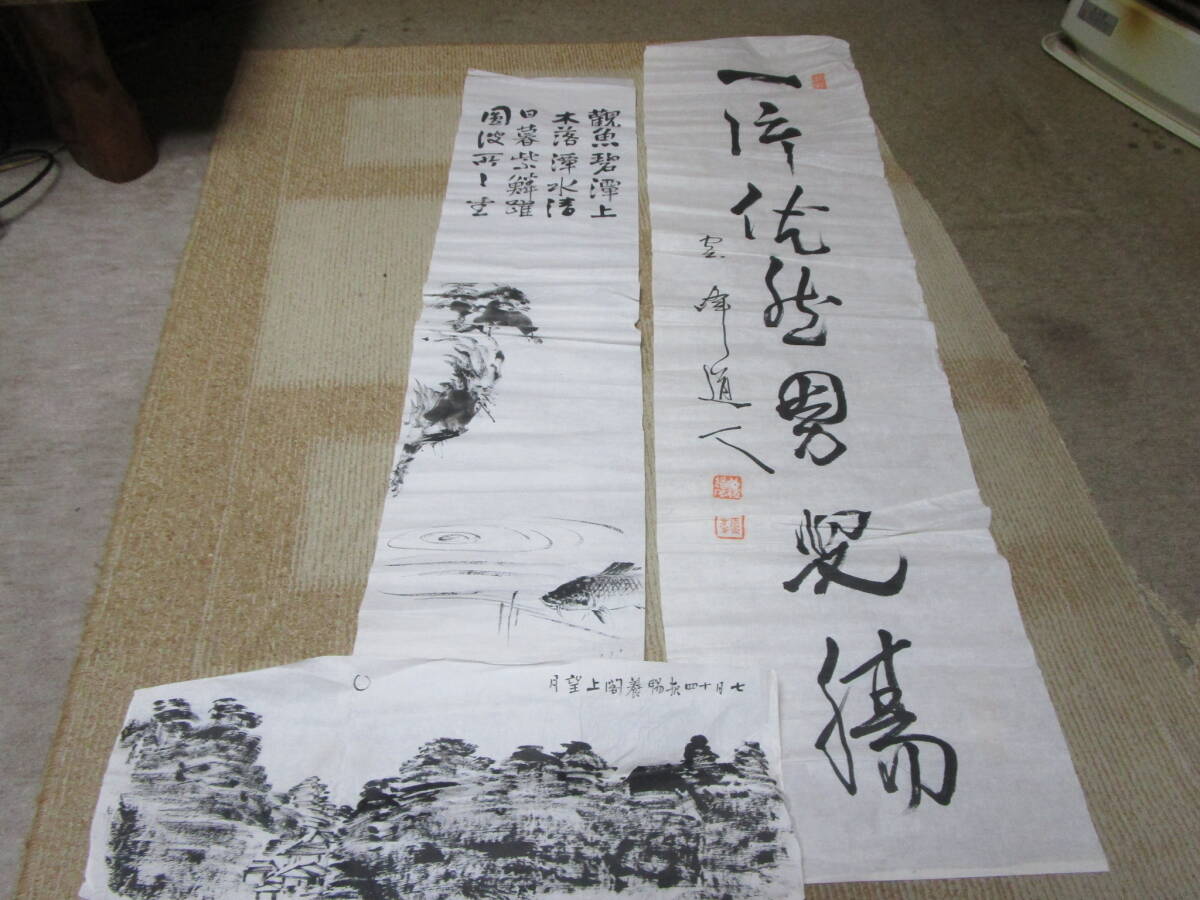 一 然男児腸
峰道人
觀魚碧潭上
木落潭水清
日暮紫鱗躍
圓波処々生
七月十四夜暢養閣上望月